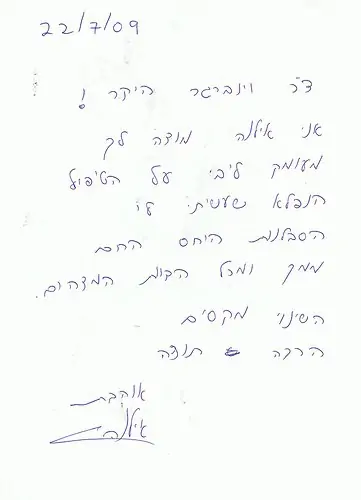 22/7/09
ד"ר וינברגר היקר!
אני אילנה מודה לך
מעומק ליבי על הטיפול
הנפלא שעשית לי
הסבלנות היחס החם
ממך ומכל הבנות המדהים.
השינוי מקסים
הרבה תודה
אוהבת
אילנה